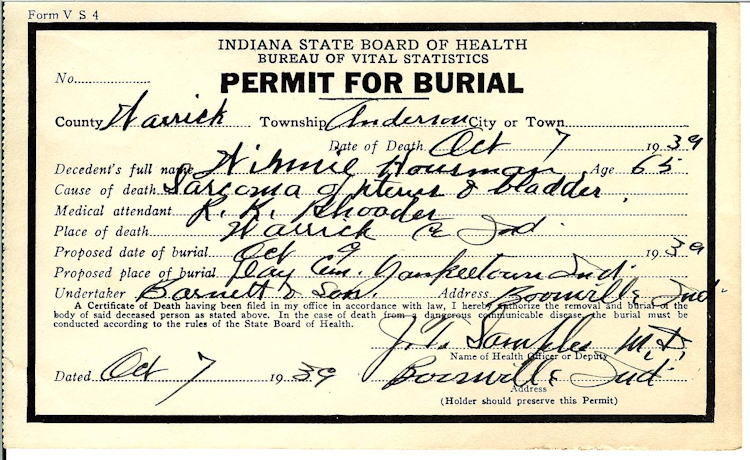 Form V S 4
INDIANA STATE BOARD OF HEALTH
BUREAU OF VITAL STATISTICS
No.
PERMIT FOR BURIAL
County Warrick Township Anderson City or Town
Date of Death Oct 7 1939
Decedent's full name Winnie Housman Age 65
Cause of death Sarcoma of uterus & bladder
Medical attendant R. K.
Place of death Warrick Co Ind.
Proposed date of burial Oct 9 1939
Proposed place of burial Day Cem. Yankeetown Ind.
Undertaker Barnett & Son. Address Boonville Ind
A Certificate of Death having been filed in my office in accordance with law, I hereby authorize the removal and burial of the
body of said deceased person as stated above. In the case of death from a dangerous communicable disease, the burial must be
conducted according to the rules of the State Board of Health.
J. T. Samples M.D.
Name of Health Officer or Deputy
Dated Oct 7 1939 Boonville Ind
Address
(Holder should preserve this Permit)